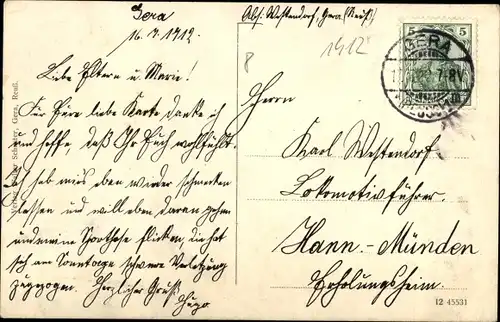 Gera
16.7.1912.
Abs: Westendorf, Gera (Reuß)
1912
8
5 5
GERA
7-8V
(REUSS)
Liebe Eltern u. Marie!
Für Eure liebe Karte danke ich
und hoffe, daß Ihr Euch wohlfühlt.
Ich hab mir's eben wieder schmecken
lassen und will eben daran gehen
und meine Sporthose flicken, die hat
sich am Sonntage schwere Verletzung
zugezogen. Herzlicher Gruß
Hugo
Herrn
Karl Westendorf
Lokomotivführer
Hann.-Münden
Erholungsheim.
Gera, Reuß.
12 45531